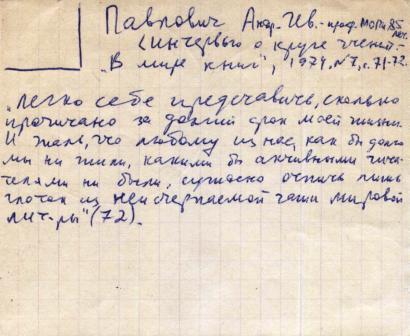 Павлович Андр. Ив. - проф. МОПИ 85 лет.
(Интервью о круге чтения -
"В мире книг", 1974, №7, с. 71-72.
"Легко себе представить, сколько
прочитано за долгий срок моей жизни.
И жаль, что любому из нас, как бы долго
мы ни жили, какими бы активными чита-
телями ни были, суждено отпить лишь
глоток из неисчерпаемой чаши мировой
лит-ры" (72).